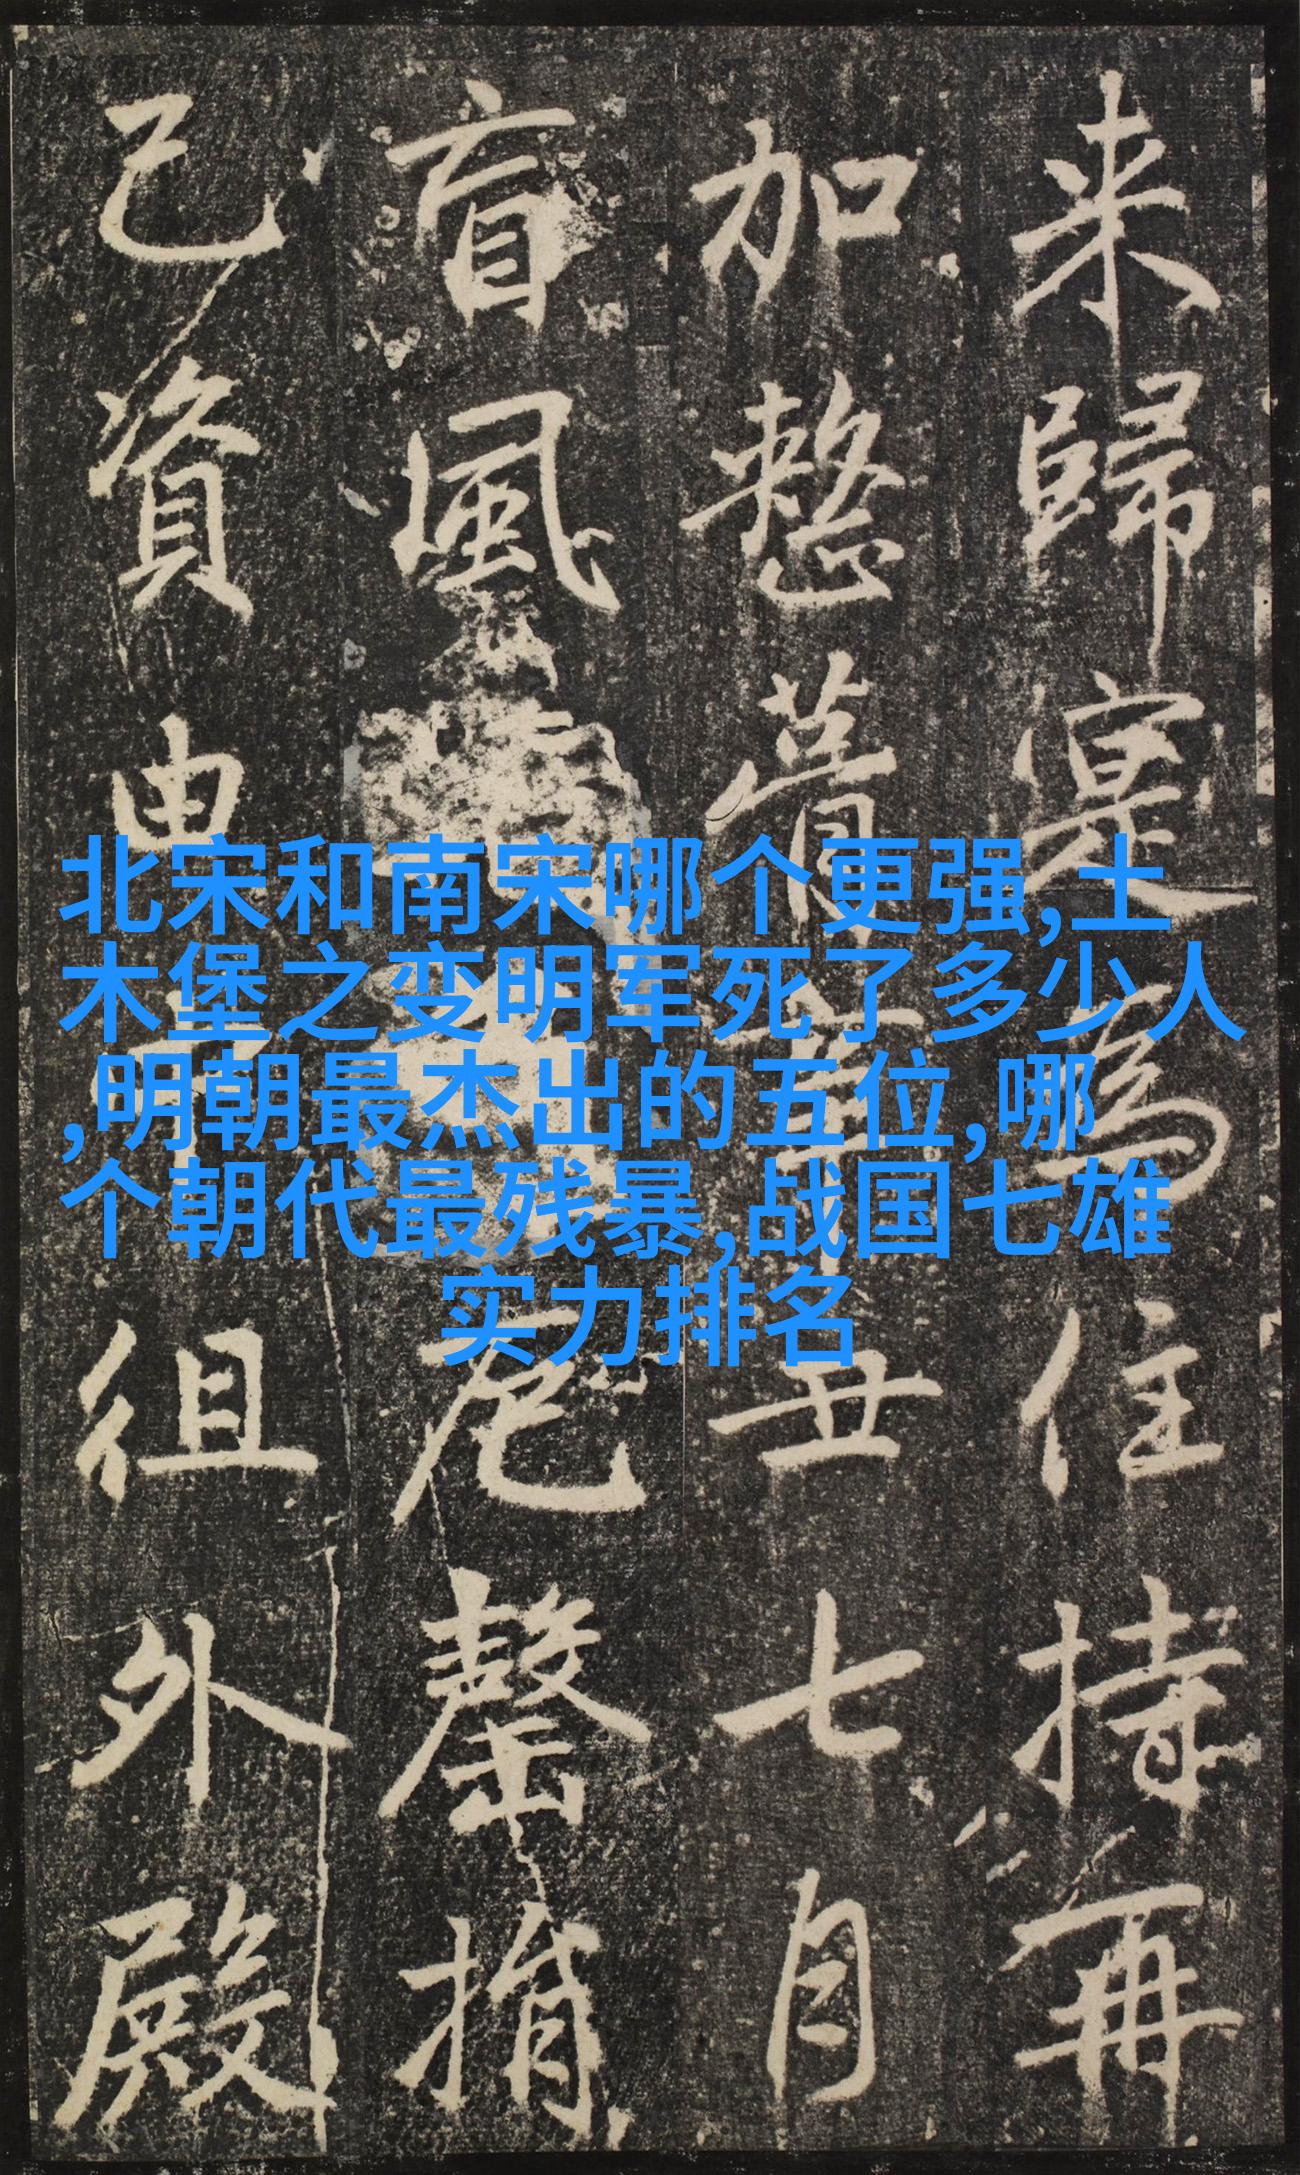 来歸寔為住持再
加整葺
丑七月
盲風
厄罄捐
己資
徂外殿
北宋和南宋哪个更强,土
木堡之变明军死了多少人
,明朝最杰出的五位,哪
个朝代最残暴,战国七雄
实力排名